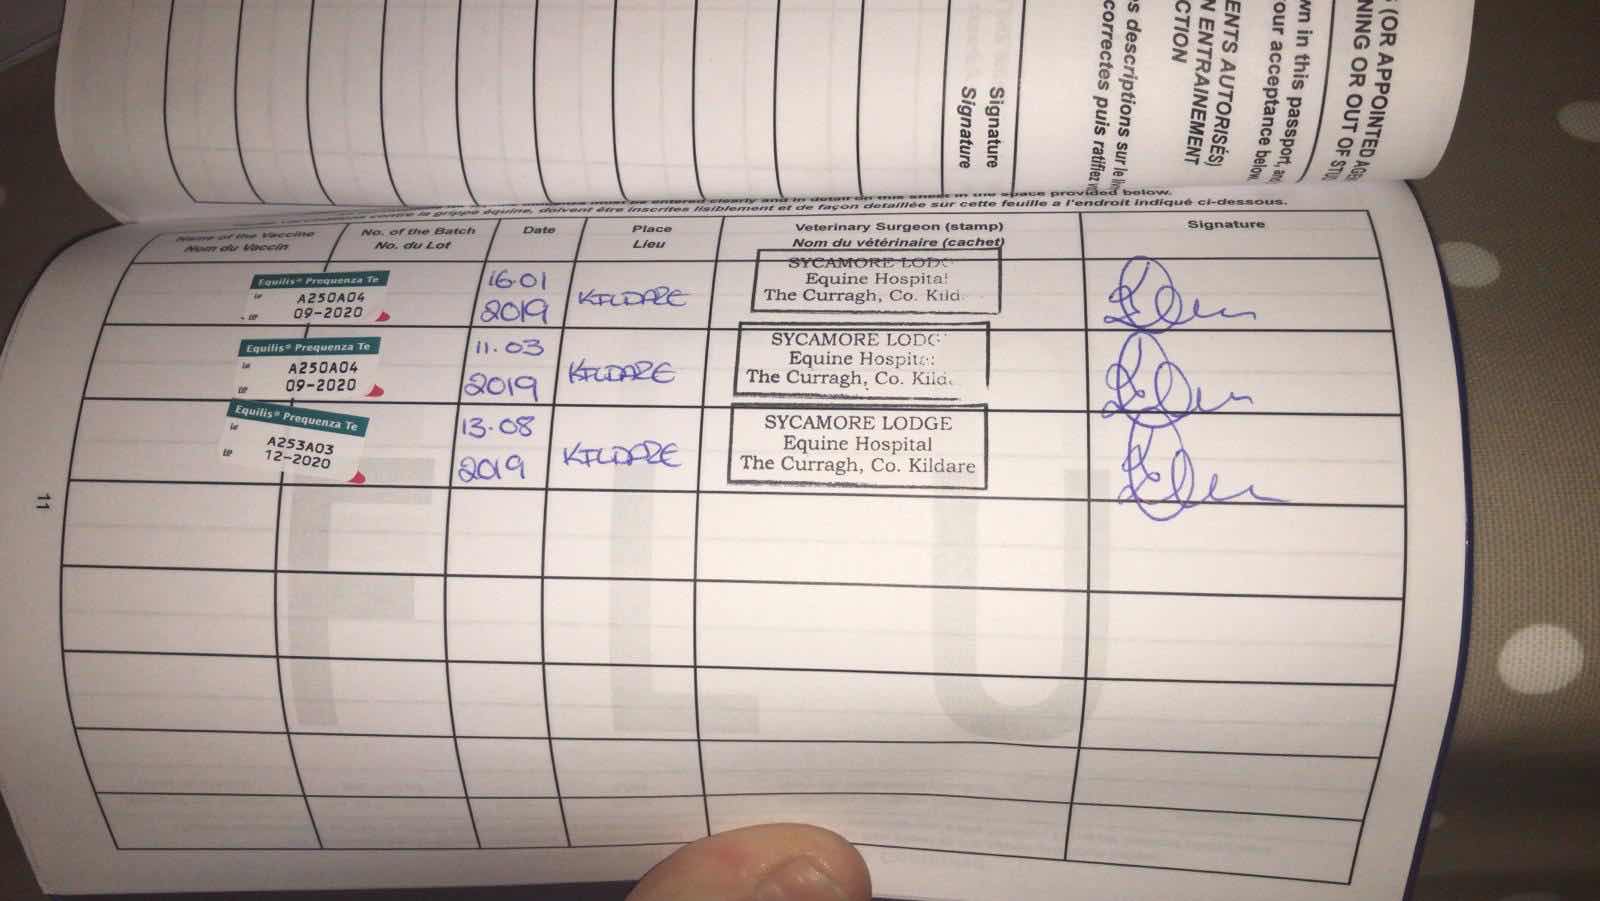 S (OR APPOINTED AGE
NING OR OUT OF STU
wn in this passport, an
our acceptance below
ENTS AUTORISÉS)
N ENTRAINEMENT
CTION
es descriptions sur le li
correctes puis ratifiez v
Signature
Signature
must be entered clearly and in detail on this sheet in the space provided below.
contre la grippe équine, doivent être inscrites lisiblement et de façon detaillée sur cette feuille a l'endroit indiqué ci-dessous.
Name of the Vaccine
Nom du Vaccin
No. of the Batch
No. du Lot
Date
Place
Lieu
Veterinary Surgeon (stamp)
Nom du vétérinaire (cachet)
Signature
Equilis® Prequenza Te
A250A04
09-2020
16.01
2019
KILDARE
SYCAMORE LODG
Equine Hospital
The Curragh, Co. Kild
Equilis® Prequenza Te
A250A04
09-2020
11.03
2019
KILDARE
SYCAMORE LODG
Equine Hospital
The Curragh, Co. Kild
Equilis® Prequenza Te
A253A03
12-2020
13.08
2019
KILDARE
SYCAMORE LODGE
Equine Hospital
The Curragh, Co. Kildare
11
FLU